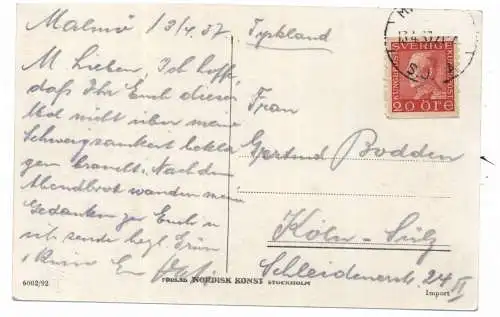 Malmö 13/4.37
M. Lieben. Ich hoffe
daß Ihr Euch dieses
Mal nicht über meine
Schweigsamkeit bekla
gen braucht. Nach dem
Abendbrot wandern meine
Gedanken zu Euch u
ich sende herzl. Grüße
u.
Tyskland
Frau
Gertrud Bodden
Köln-Sülz
Schleidenerstr. 24 II
SVERIGE
20 ÖRE
6002/92
FÖRLAG NORDISK KONST STOCKHOLM
Import